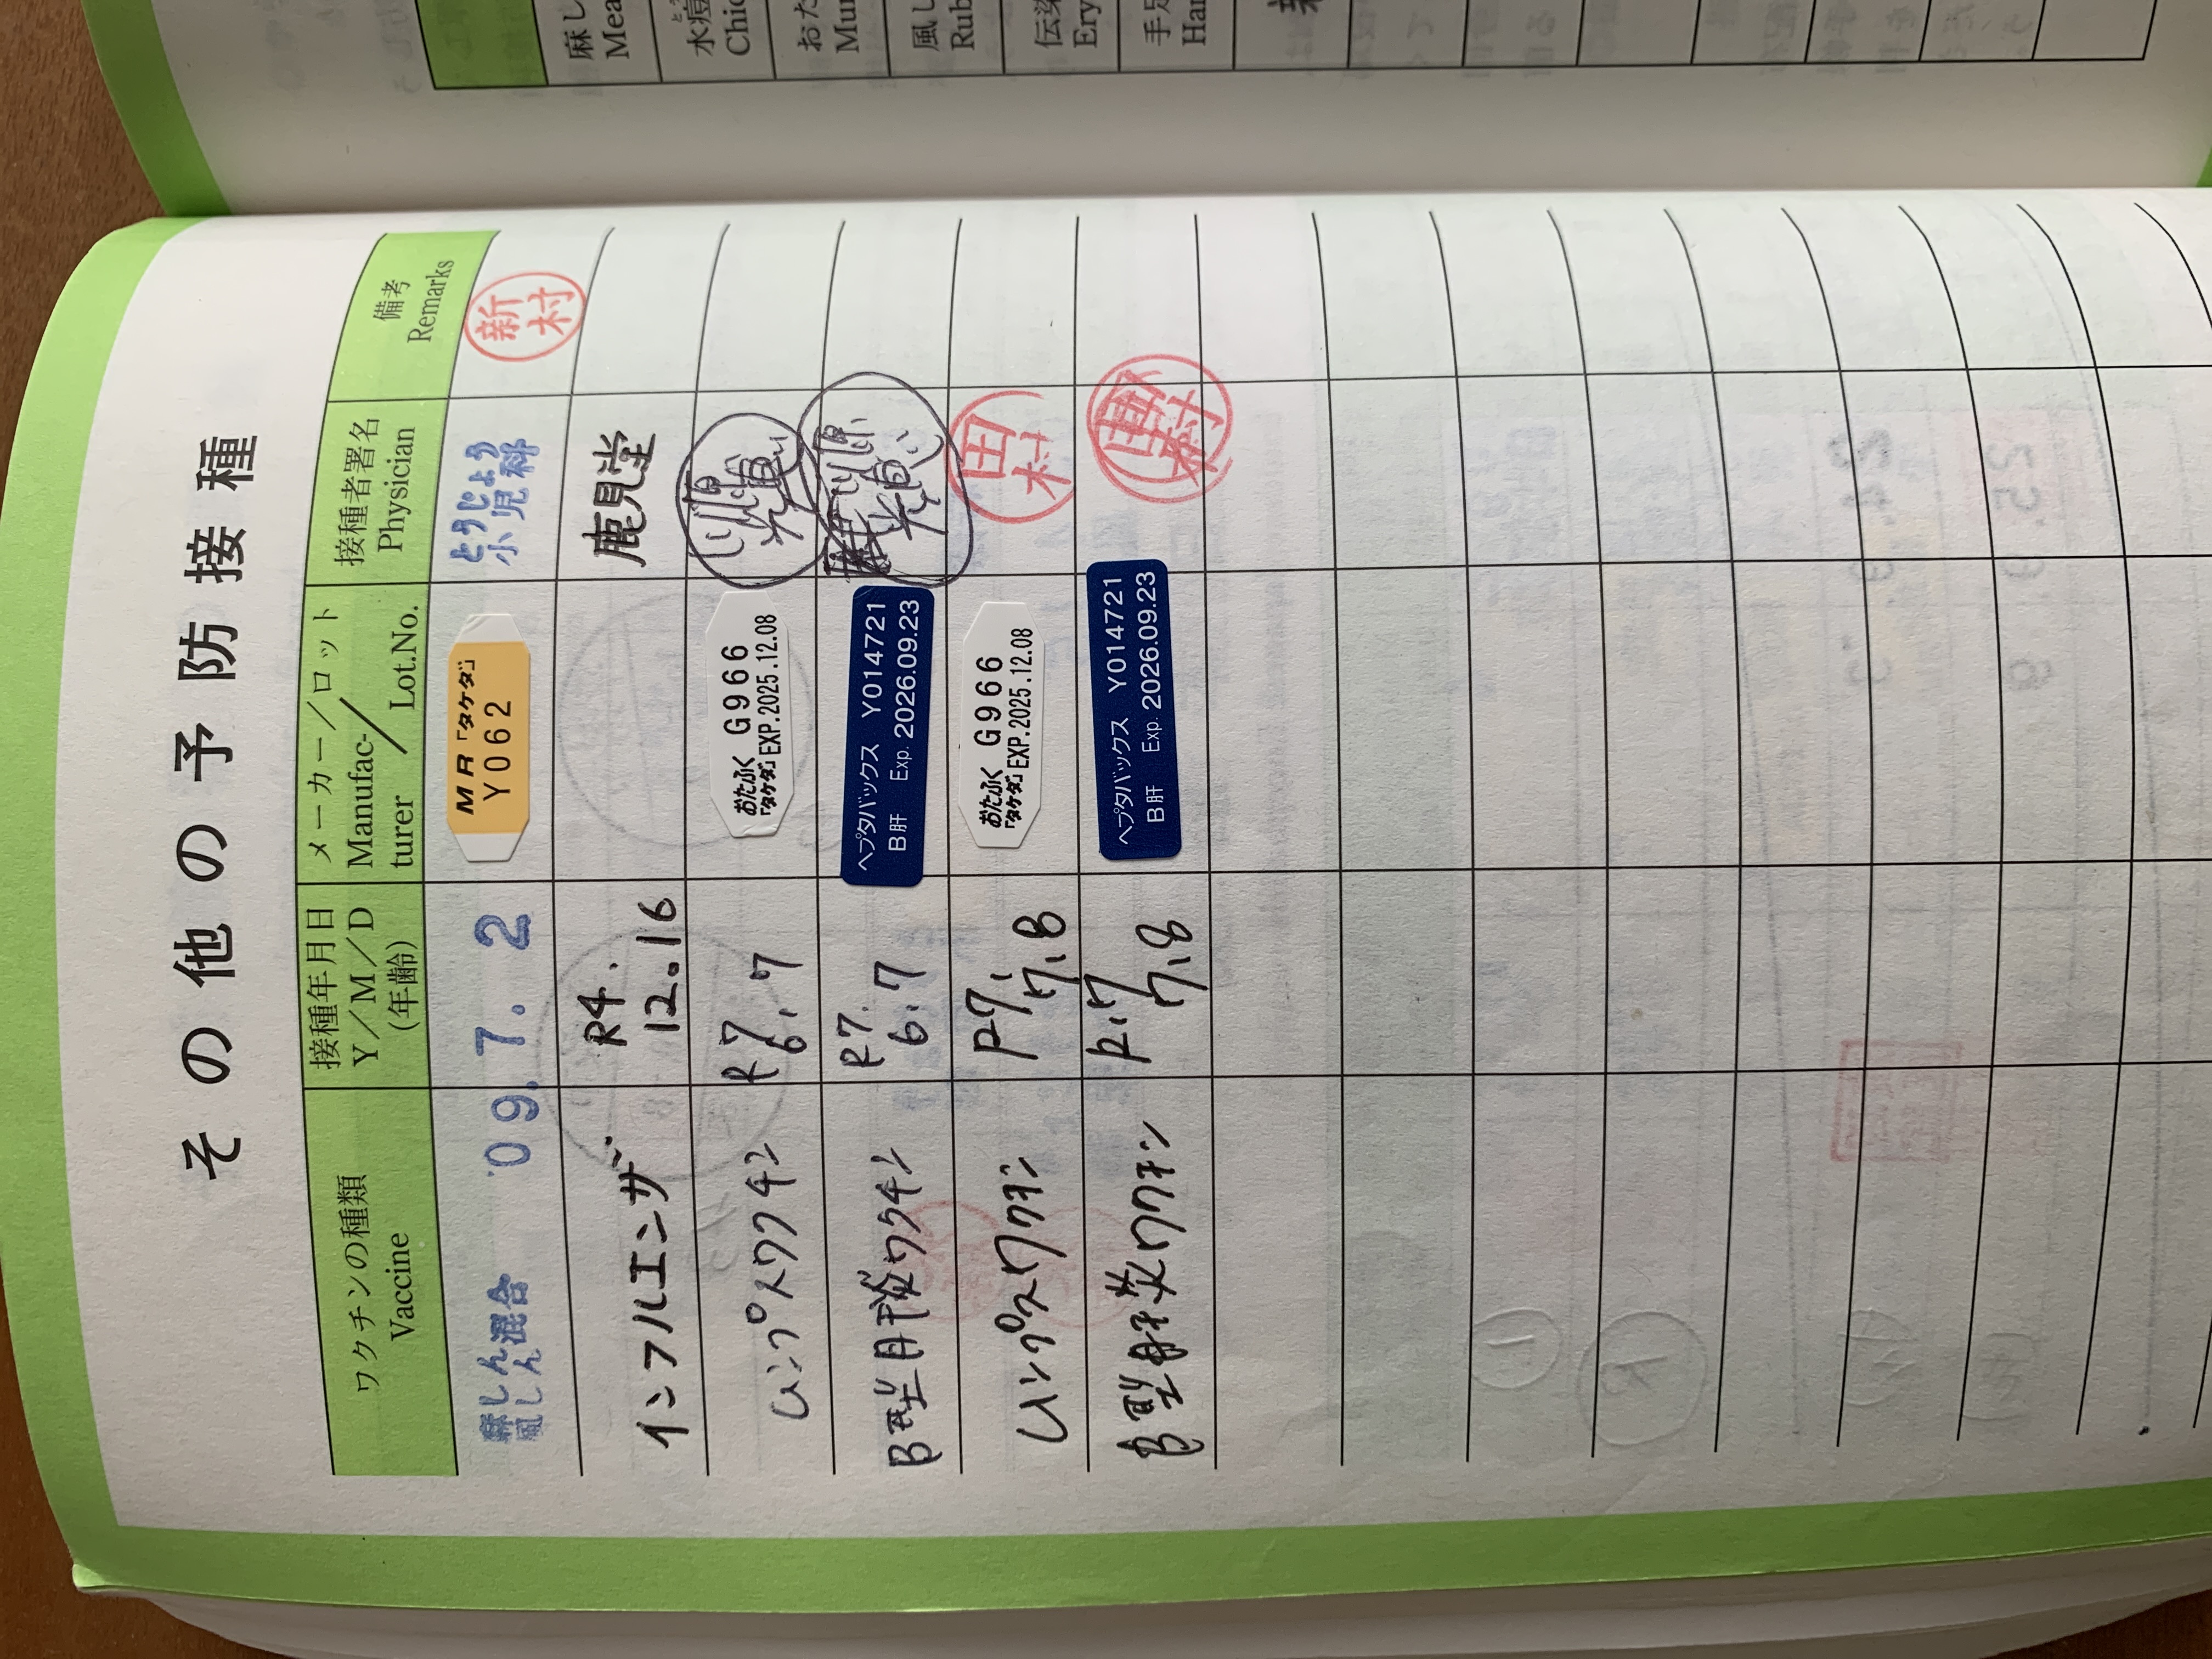 その他の予防接種
ワクチンの種類
Vaccine
接種年月日
Y／M／D
(年齢)
メーカー／ロット
Manufac-
turer／Lot.No.
接種者署名
Physician
備考
Remarks
麻しん
風しん
混合
'09. 7. 2
MR「タケダ」
Y062
とうじょう
小児科
新村
インフルエンザ
R4.
12.16
鹿見堂
ムンプスワクチン
R7
6.7
おたふく G966
「タケダ」EXP.2025.12.08
B型肝炎ワクチン
R7.
6.7
ヘプタバックス Y014721
B肝 Exp. 2026.09.23
ムンプスワクチン
R7.
7.8
おたふく G966
「タケダ」EXP.2025.12.08
田村
B型肝炎ワクチン
R.7
7.8
ヘプタバックス Y014721
B肝 Exp. 2026.09.23
麻し
Mea
水痘
Chic
おた
Mu
風し
Rub
伝染
Ery
手足
Han